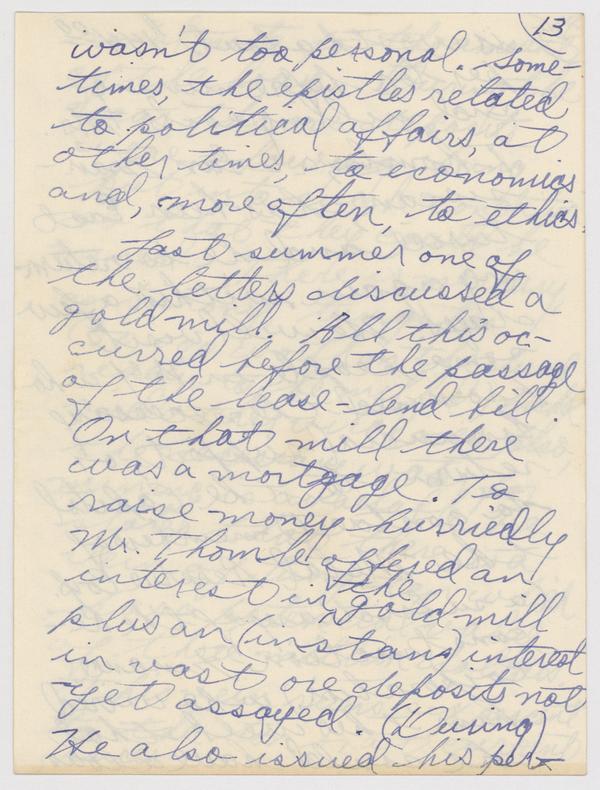 13
wasn't too personal. Some-
times, the epistles related
to political affairs, at
other times, to economics
and, more often, to ethics.
Last summer one of
the letters discussed a
gold mill. All this oc-
curred before the passage
of the lease-lend bill.
On that mill there
was a mortgage. To
raise money hurriedly
Mr. Thomle offered an
interest in the gold mill
plus an (instans) interest
in vast ore deposits not
yet assayed. (During)
He also issued his per-